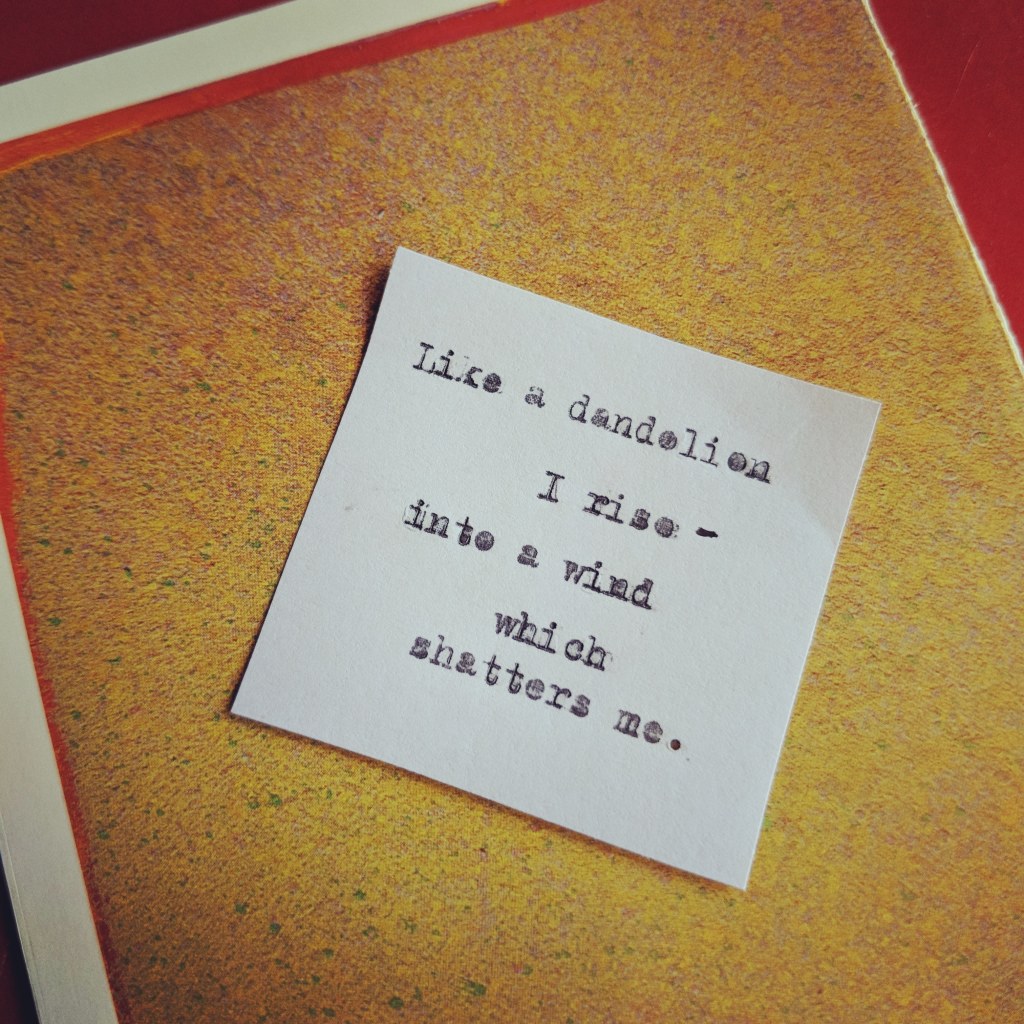 Like a dandelion
I rise -
into a wind
which
shatters me.